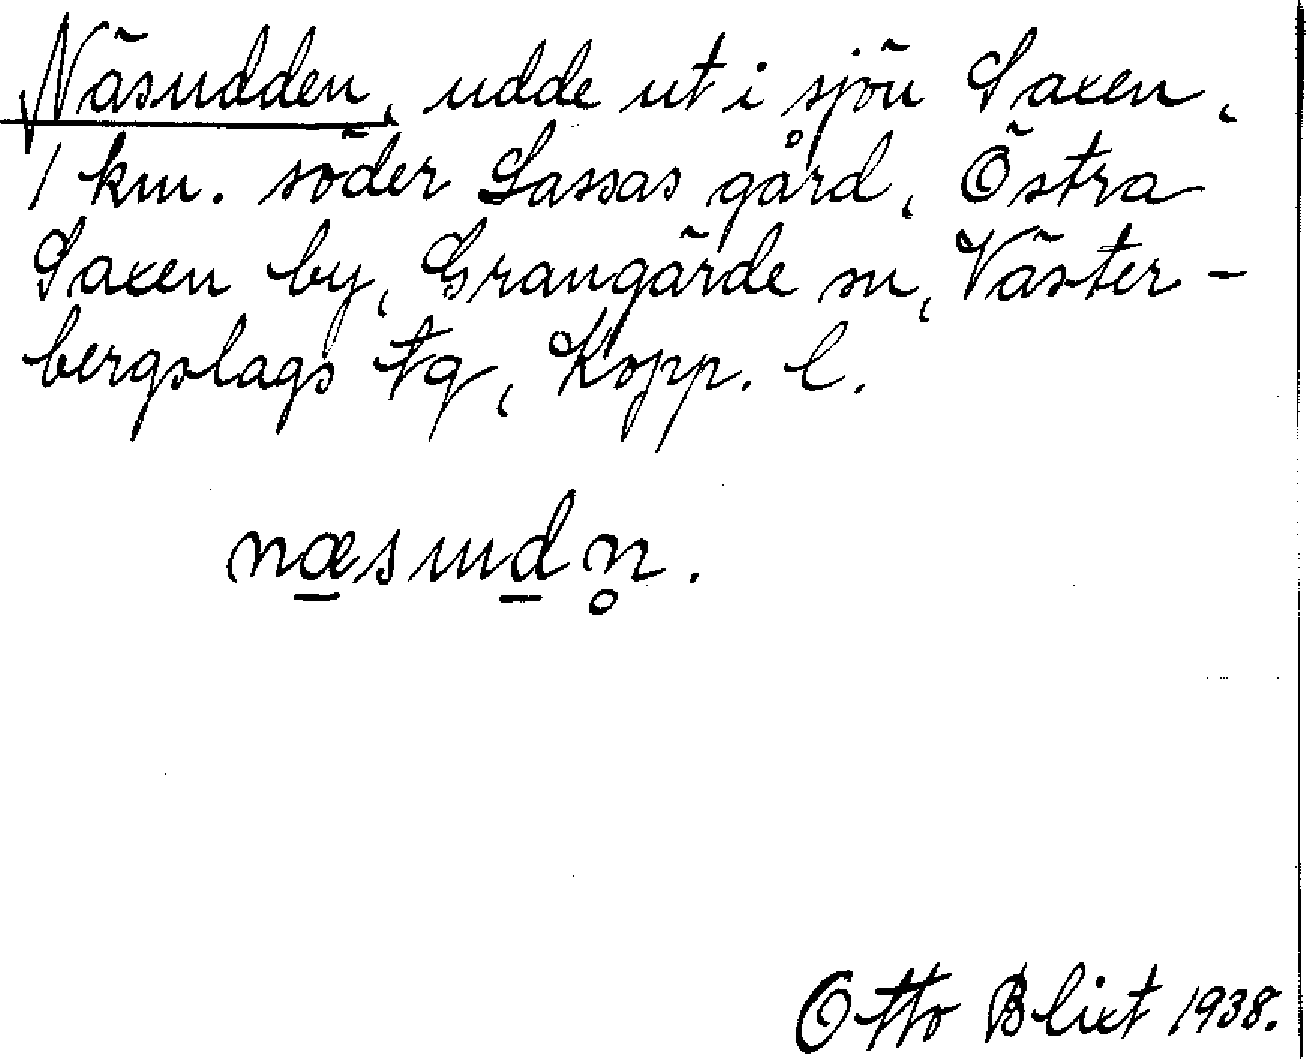 Näsudden, udde ut i sjön Saxen,
1 km. söder Lassas gård, Östra
Saxen by, Grangärde sn, Väster-
bergslags tg, Kopp. l.
næ̲sud̲n̥.
Otto Blixt 1938.